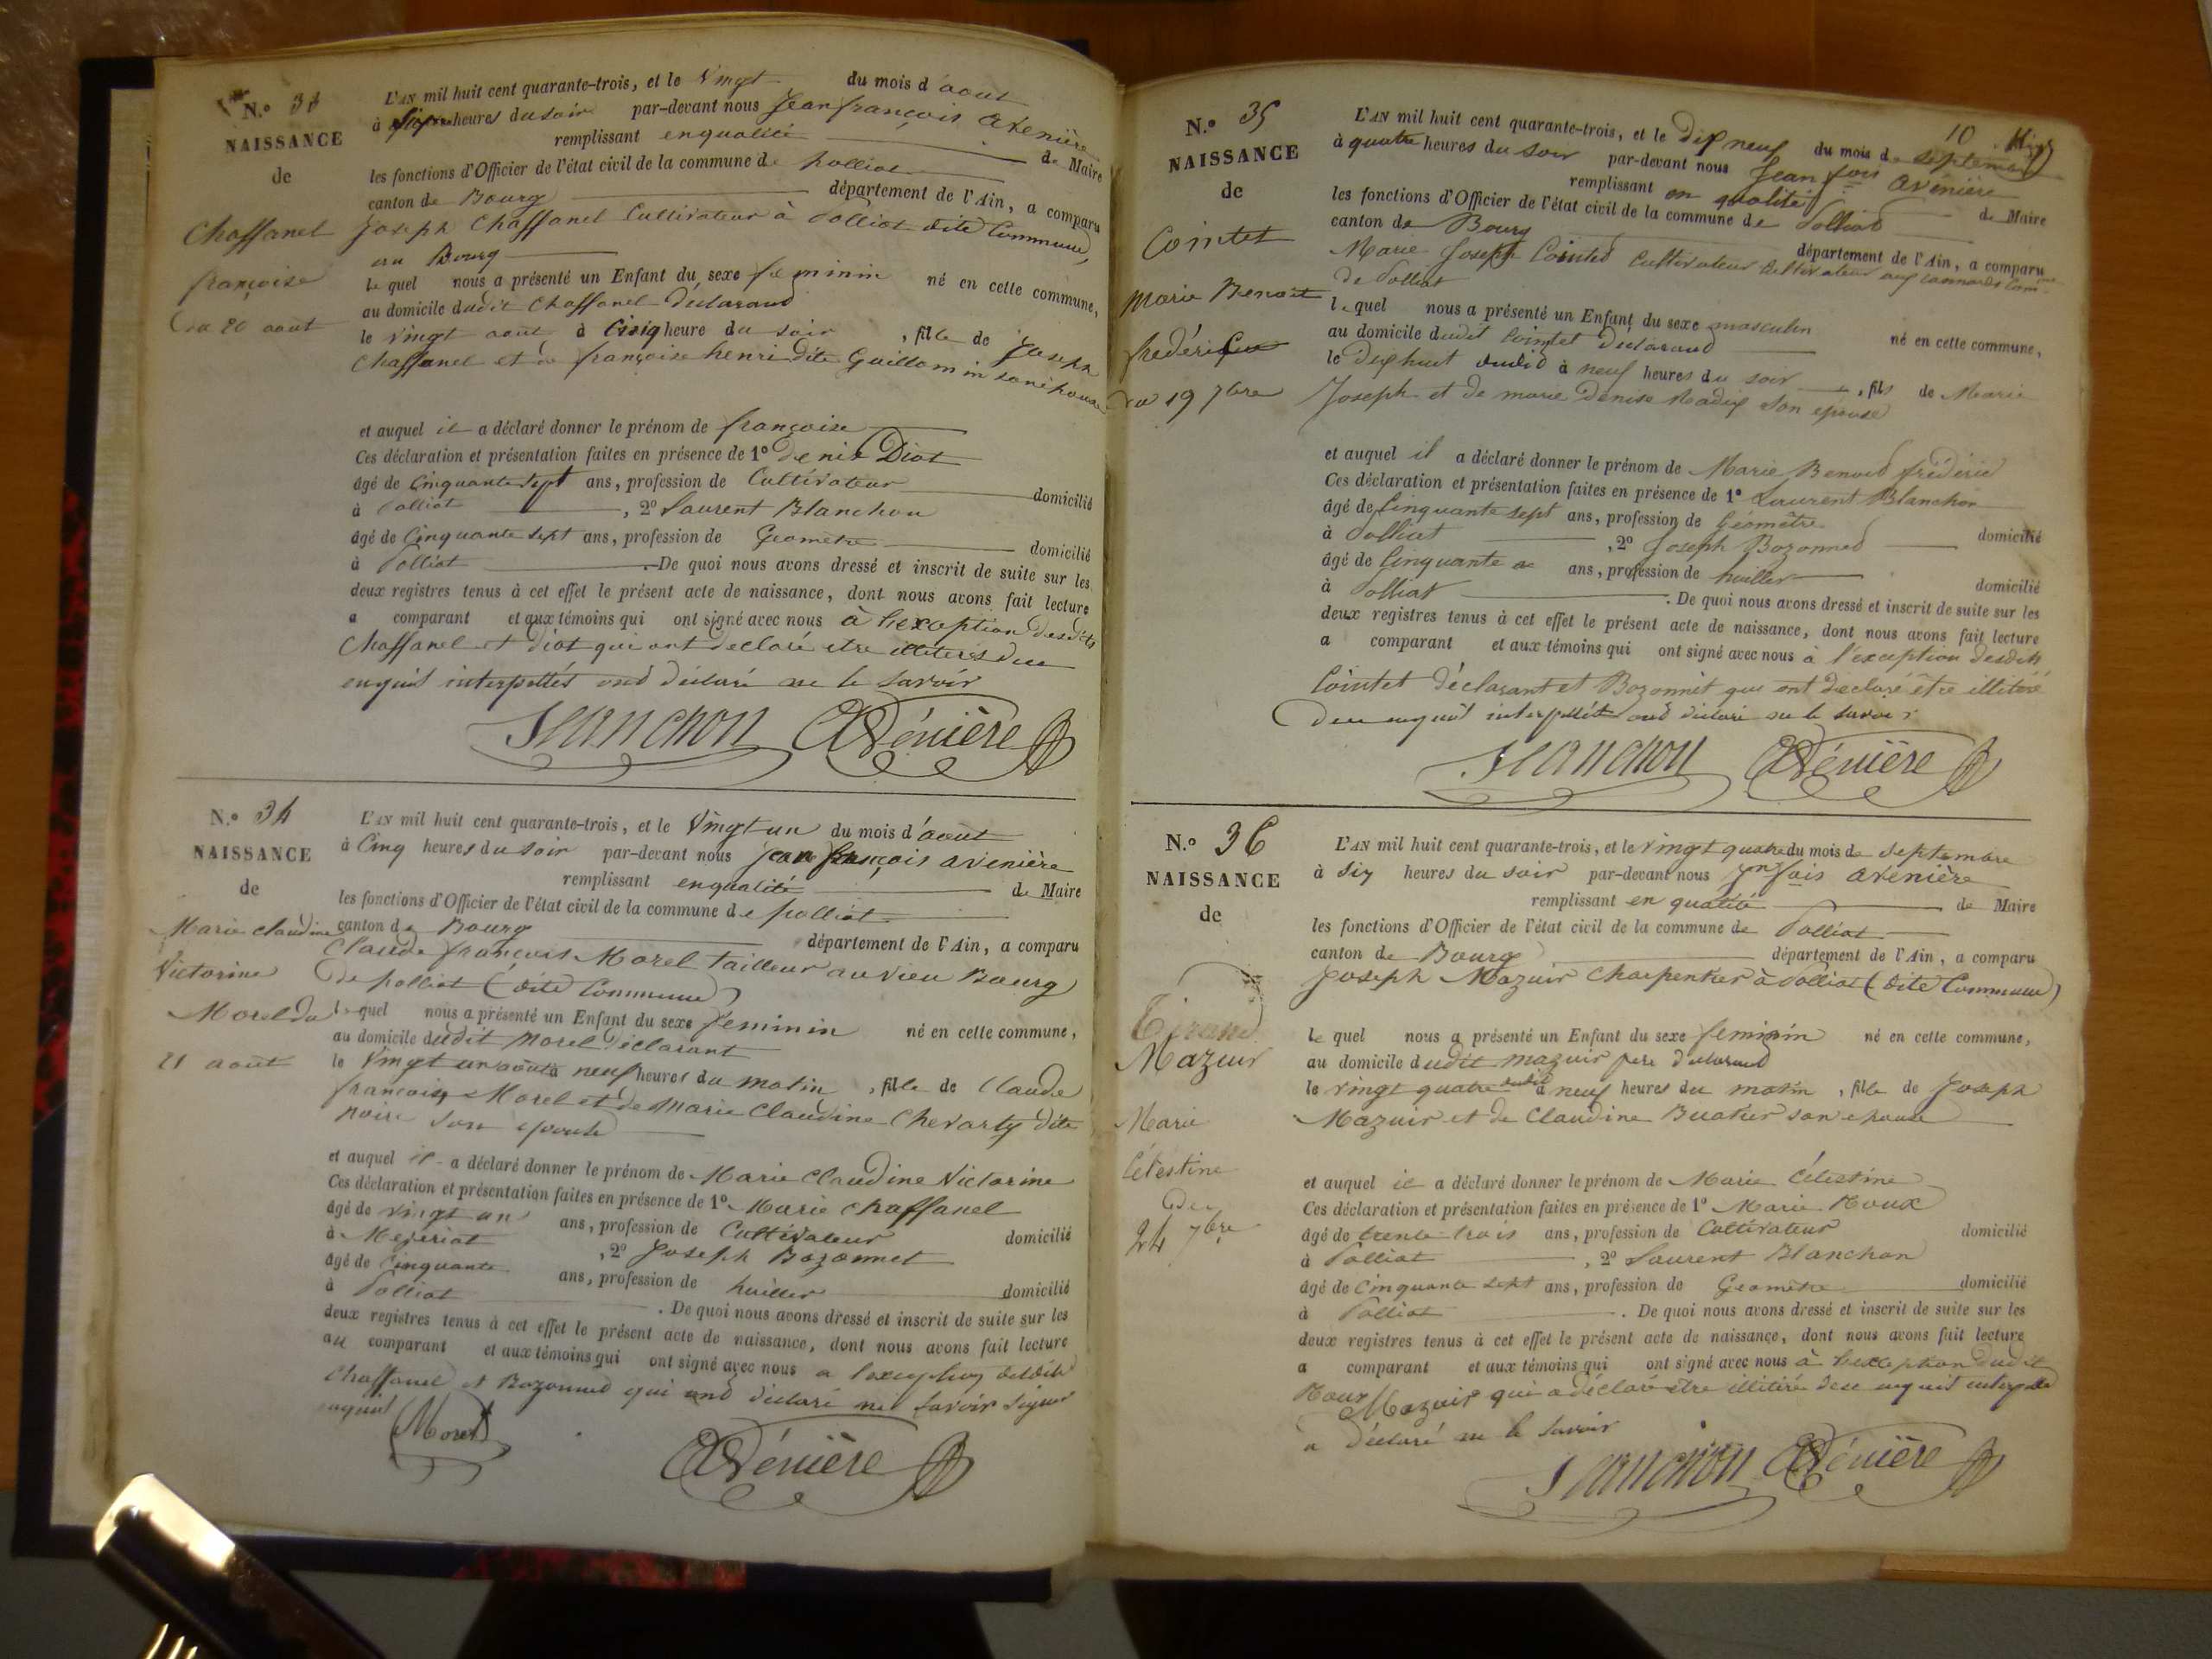 N.º 33
NAISSANCE
de
Chaffanel
françoise
du 20 août
L'AN mil huit cent quarante-trois, et le Vingt du mois d'août
à heures du soir par-devant nous Jean françois avenière
remplissant en qualité de Maire
les fonctions d'Officier de l'état civil de la commune de polliat
canton de Bourg département de l'Ain, a comparu
Joseph Chaffanel Cultivateur à Polliat dite Commune,
au Bourg
le quel nous a présenté un Enfant du sexe feminin né en cette commune,
au domicile dudit Chaffanel déclarand
le vingt août à Cinq heure du soir, fille de Joseph
Chaffanel et de françoise henri dite Guillomin son épouse
et auquel il a déclaré donner le prénom de françoise
Ces déclaration et présentation faites en présence de 1º denis Diot
âgé de Cinquante sept ans, profession de Cultivateur domicilié
à Polliat, 2º Laurent Blanchon
âgé de Cinquante sept ans, profession de Geometre domicilié
à Polliat. De quoi nous avons dressé et inscrit de suite sur les
deux registres tenus à cet effet le présent acte de naissance, dont nous avons fait lecture
a comparant et aux témoins qui ont signé avec nous à l'exception desdits
Chaffanel et Diot qui ont declaré etre illiterés deu
enquis interpellés ond déclaré ne le Savoir
Blanchon Avénière
N.º 34
NAISSANCE
de
Marie claudine
Victorine
Morel du
21 août
L'AN mil huit cent quarante-trois, et le Vingt un du mois d'août
à Cinq heures du soir par-devant nous jean françois avenière
remplissant en qualité de Maire
les fonctions d'Officier de l'état civil de la commune de polliat
canton de Bourg département de l'Ain, a comparu
Claude françois Morel tailleur au vieu Bourg
de polliat (dite Commune)
le quel nous a présenté un Enfant du sexe feminin né en cette commune,
au domicile dudit Morel déclarant
le Vingt un août à neuf heures du matin, fille de Claude
françois Morel et de Marie Claudine Chevarty dite
noire son epouse
et auquel il a déclaré donner le prénom de Marie Claudine Victorine
Ces déclaration et présentation faites en présence de 1º Marie Chaffanel
âgé de vingt un ans, profession de Cultivateur domicilié
à Mezeriat, 2º Joseph Bozonnet
âgé de Cinquante ans, profession de huillier domicilié
à Polliat. De quoi nous avons dressé et inscrit de suite sur les
deux registres tenus à cet effet le présent acte de naissance, dont nous avons fait lecture
au comparant et aux témoins qui ont signé avec nous a l'exception desdits
Chaffanel et Bozonned qui ond déclaré ne savoir signer
enquis
Morel
Avénière
10
N.º 35
NAISSANCE
de
Cointet
Marie Benoit
frédéric
du 19 7bre
L'AN mil huit cent quarante-trois, et le Dix neuf du mois de septembre
à quatre heures du soir par-devant nous Jean fois avenière
remplissant en qualité de Maire
les fonctions d'Officier de l'état civil de la commune de Polliat
canton de Bourg département de l'Ain, a comparu
Marie Joseph Cointed Cultivateur Cultivateur aux
de Polliat
le quel nous a présenté un Enfant du sexe masculin né en cette commune,
au domicile dudit Cointet déclarand
le dix huit dudit à neuf heures du soir, fils de Marie
Joseph et de marie Denise Nadix son épouse
et auquel il a déclaré donner le prénom de Marie Benoid frédéric
Ces déclaration et présentation faites en présence de 1º Laurent Blanchon
âgé de Cinquante sept ans, profession de Géomêtre domicilié
à Polliat, 2º Joseph Bozonned
âgé de Cinquante ans, profession de huillier domicilié
à Polliat. De quoi nous avons dressé et inscrit de suite sur les
deux registres tenus à cet effet le présent acte de naissance, dont nous avons fait lecture
a comparant et aux témoins qui ont signé avec nous à l'exception desdits
Cointet déclarant et Bozonnet qui ont declaré être illitéré
deu enquis interpellés ond déclaré ne le savoir
Blanchon Avénière
N.º 36
NAISSANCE
de
Mazuir
Marie
Célestine
du
24 7bre
L'AN mil huit cent quarante-trois, et le vingt quatre du mois de septembre
à six heures du soir par-devant nous jn fois avenière
remplissant en qualité de Maire
les fonctions d'Officier de l'état civil de la commune de Polliat
canton de Bourg département de l'Ain, a comparu
Joseph Mazuir Charpentier à Polliat (dite Commune)
le quel nous a présenté un Enfant du sexe feminin né en cette commune,
au domicile dudit mazuir pere déclarand
le vingt quatre dudit à neuf heures du matin, fille de Joseph
Mazuir et de Claudine Buatier son epouse
et auquel il a déclaré donner le prénom de Marie Célestine
Ces déclaration et présentation faites en présence de 1º Marie Roux
âgé de trente trois ans, profession de Cultivateur domicilié
à Polliat, 2º Laurent Blanchon
âgé de Cinquante sept ans, profession de Geomêtre domicilié
à Polliat. De quoi nous avons dressé et inscrit de suite sur les
deux registres tenus à cet effet le présent acte de naissance, dont nous avons fait lecture
a comparant et aux témoins qui ont signé avec nous à l'exception dudit
Roux Mazuir qui a déclaré etre illitéré deu enquis interpellé
a déclaré ne le savoir
Blanchon Avénière